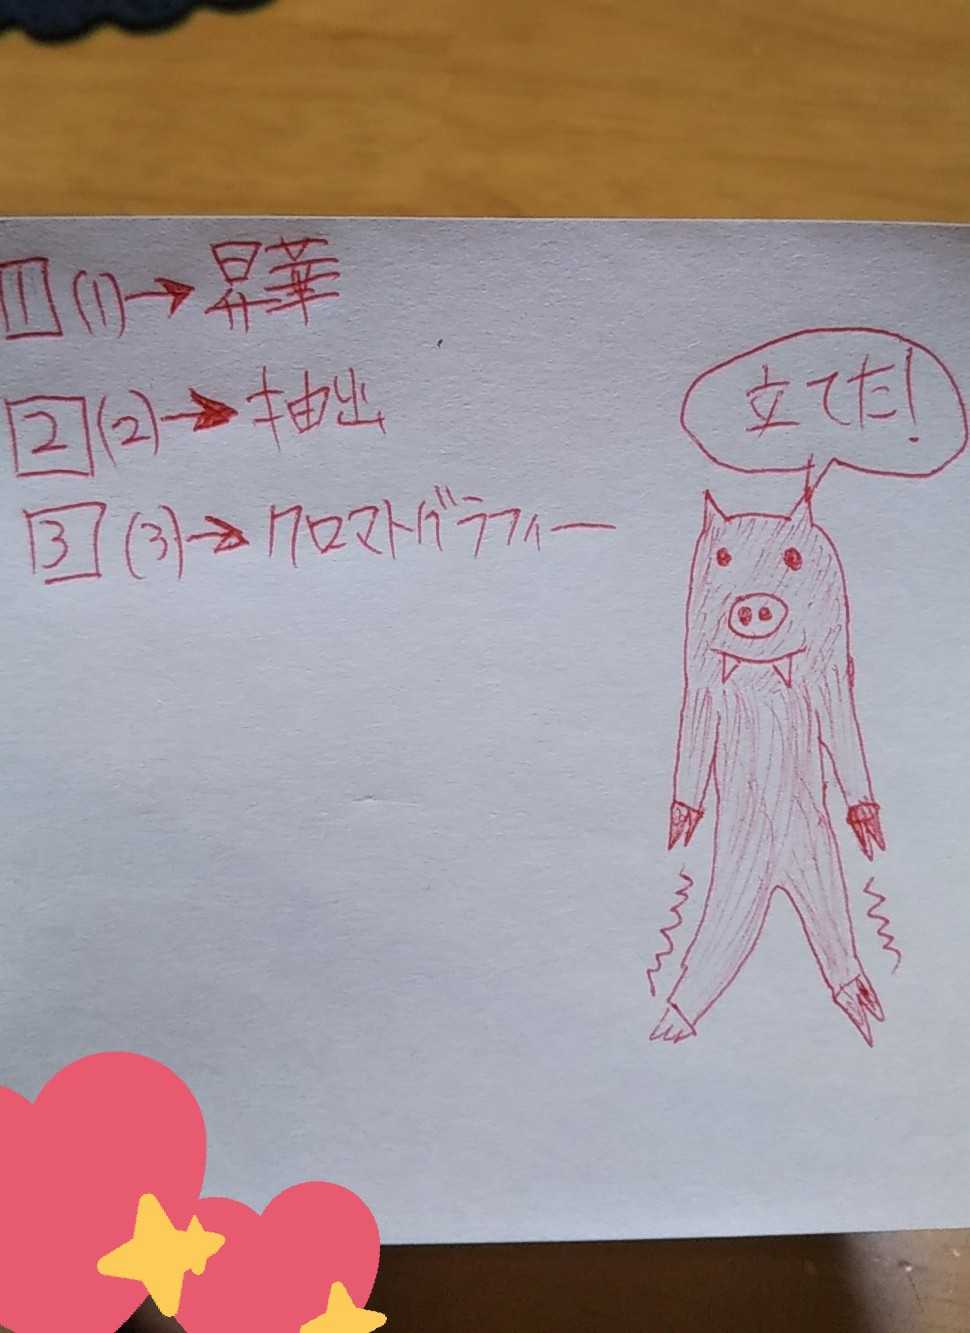 1 (1)→昇華
2 (2)→抽出
3 (3)→クロマトグラフィー
立てた!